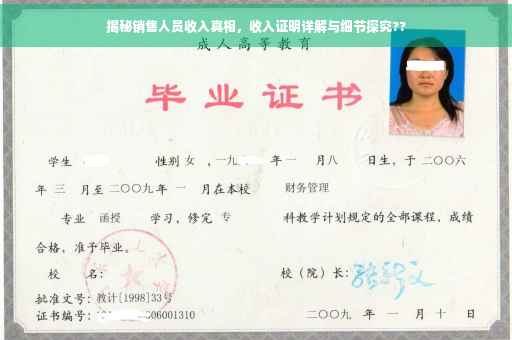 揭秘销售人员收入真相，收入证明详解与细节探究??
成人高等教育
毕业证书
学生 性别 女 ，一九 年 一 月八 日生，于 二〇〇六
年 三 月至 二〇〇九 年 一 月在本校 财务管理
专业 函授 学习，修完 专 科教学计划规定的全部课程，成绩
合格，准予毕业。
校 名： 校（院）长：
批准文号：教计[1998]33号
证书编号： 06001310 二〇〇九 年 一 月 十 日